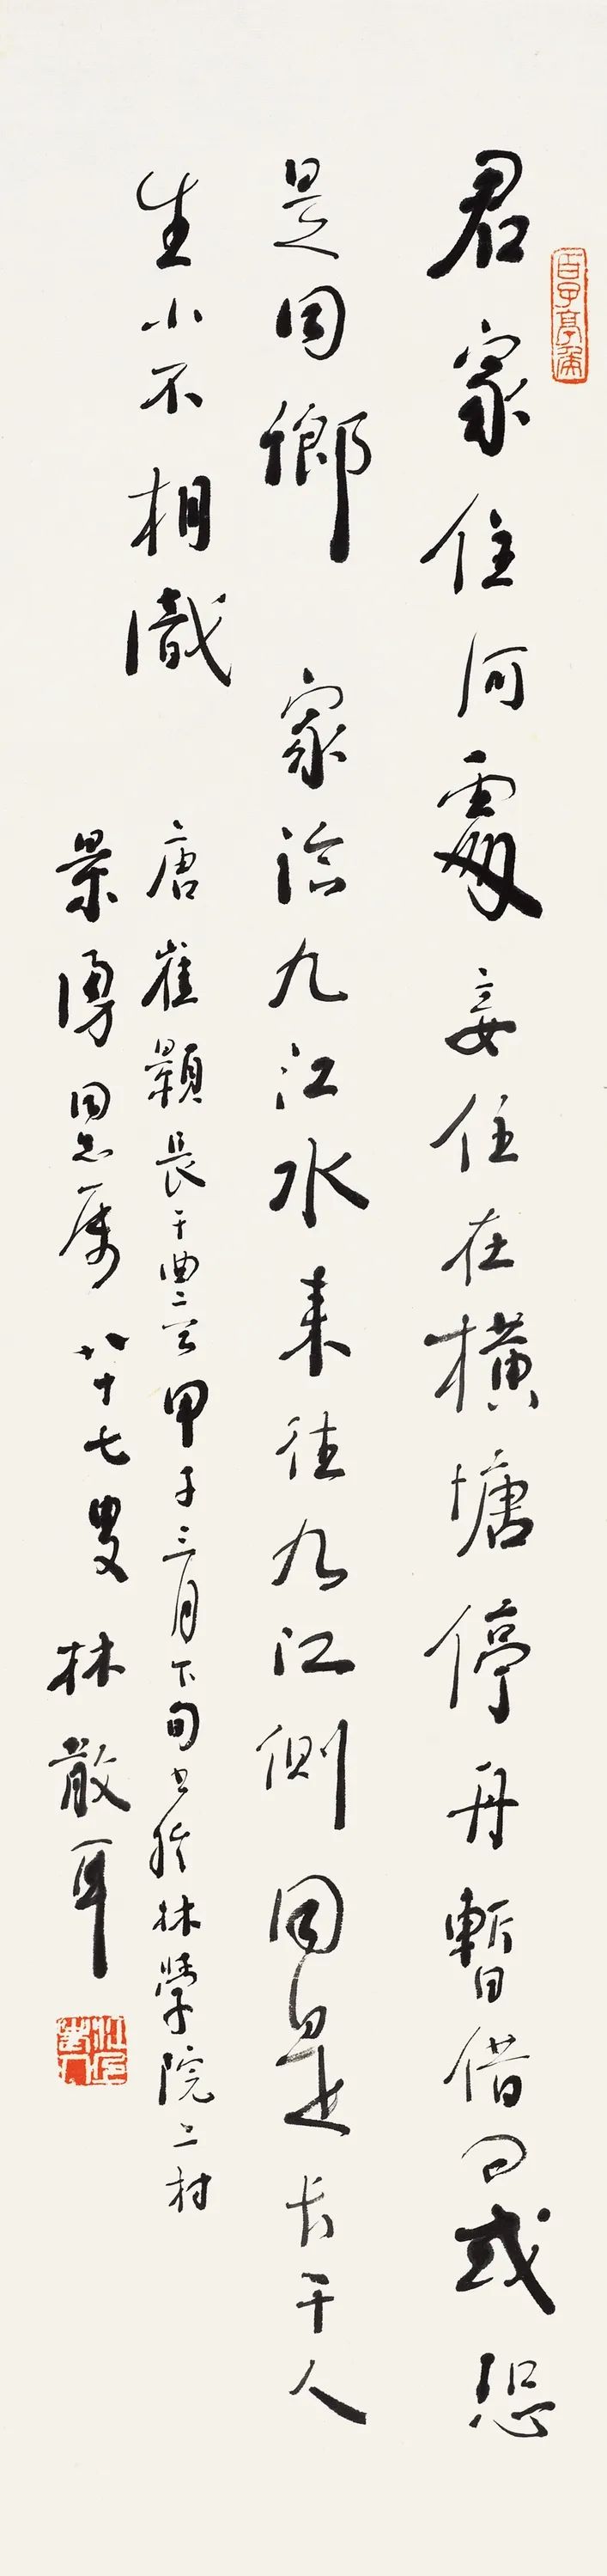 君家住何處妾住在橫塘停舟暫借问或恐
是同鄉　家臨九江水來往九江側同是长干人
生小不相識
唐崔顥長干曲二首甲子三月下旬书於林學院二村
景湧同志属　八十七叟　林散耳